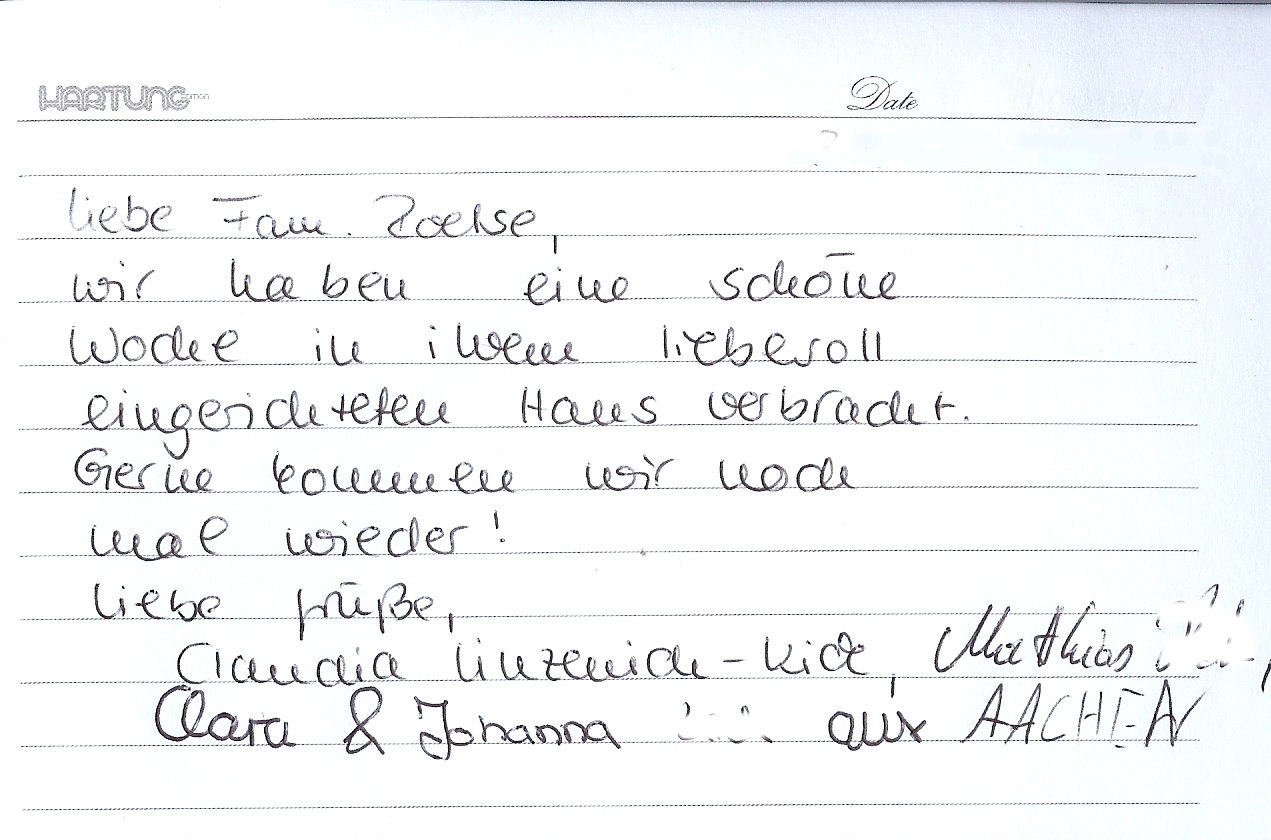 HARTUNG EDITION Date
liebe Fam. Zoelse,
wir haben eine schöne
Woche in ihrem liebevoll
eingerichteten Haus verbracht.
Gerne kommen wir noch
mal wieder!
liebe grüße,
Claudia Linzenich-Kick, Mathias
Clara & Johanna aus AACHEN